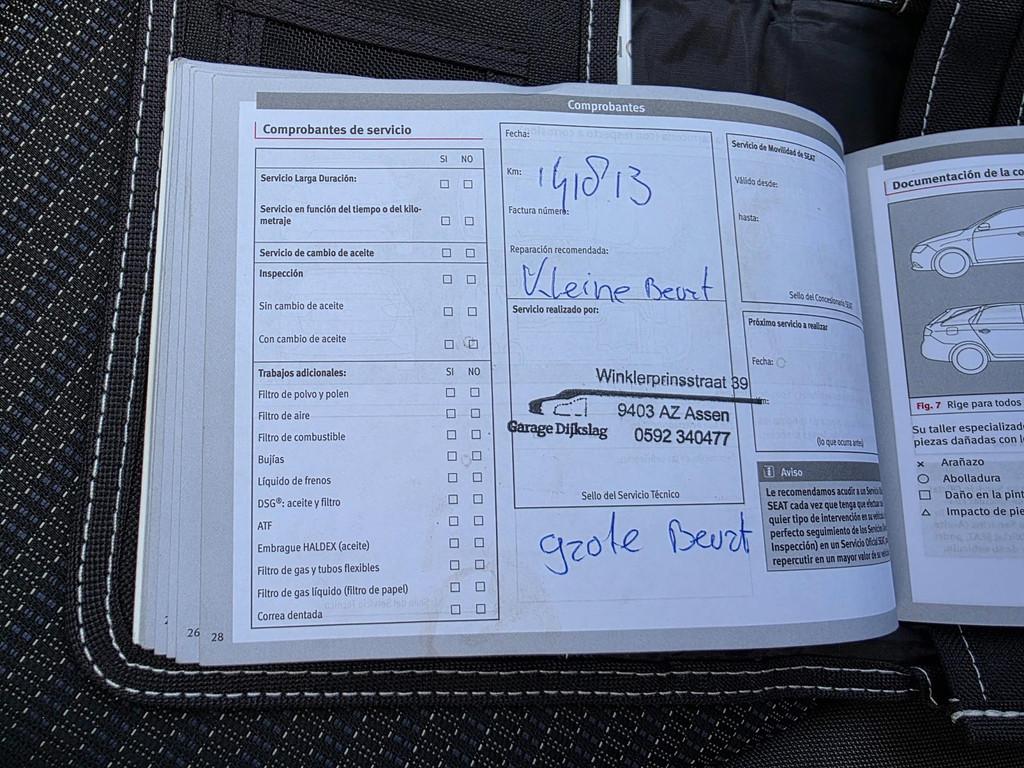 Comprobantes
Comprobantes de servicio
SI NO
Servicio Larga Duración:
Servicio en función del tiempo o del kilo-
metraje
Servicio de cambio de aceite
Inspección
Sin cambio de aceite
Con cambio de aceite
Trabajos adicionales: SI NO
Filtro de polvo y polen
Filtro de aire
Filtro de combustible
Bujías
Líquido de frenos
DSG®: aceite y filtro
ATF
Embrague HALDEX (aceite)
Filtro de gas y tubos flexibles
Filtro de gas líquido (filtro de papel)
Correa dentada
26
28
Fecha:
Km: 141813
Factura número:
Reparación recomendada:
Kleine Beurt
Servicio realizado por:
Winklerprinsstraat 39
9403 AZ Assen
Garage Dijkslag 0592 340477
Sello del Servicio Técnico
grote Beurt
Servicio de Movilidad de SEAT
Válido desde:
hasta:
Sello del Concesionario SEAT
Próximo servicio a realizar
Fecha:
(lo que ocurra antes)
Aviso
Le recomendamos acudir a un Servicio
SEAT cada vez que tenga que efectuar
quier tipo de intervención en su vehículo
perfecto seguimiento de los Servicios
Inspección) en un Servicio Oficial SEAT,
repercutir en un mayor valor de su
Documentación de la
Fig. 7 Rige para todos
Su taller especializado
piezas dañadas con
Arañazo
Abolladura
Daño en la
Impacto de